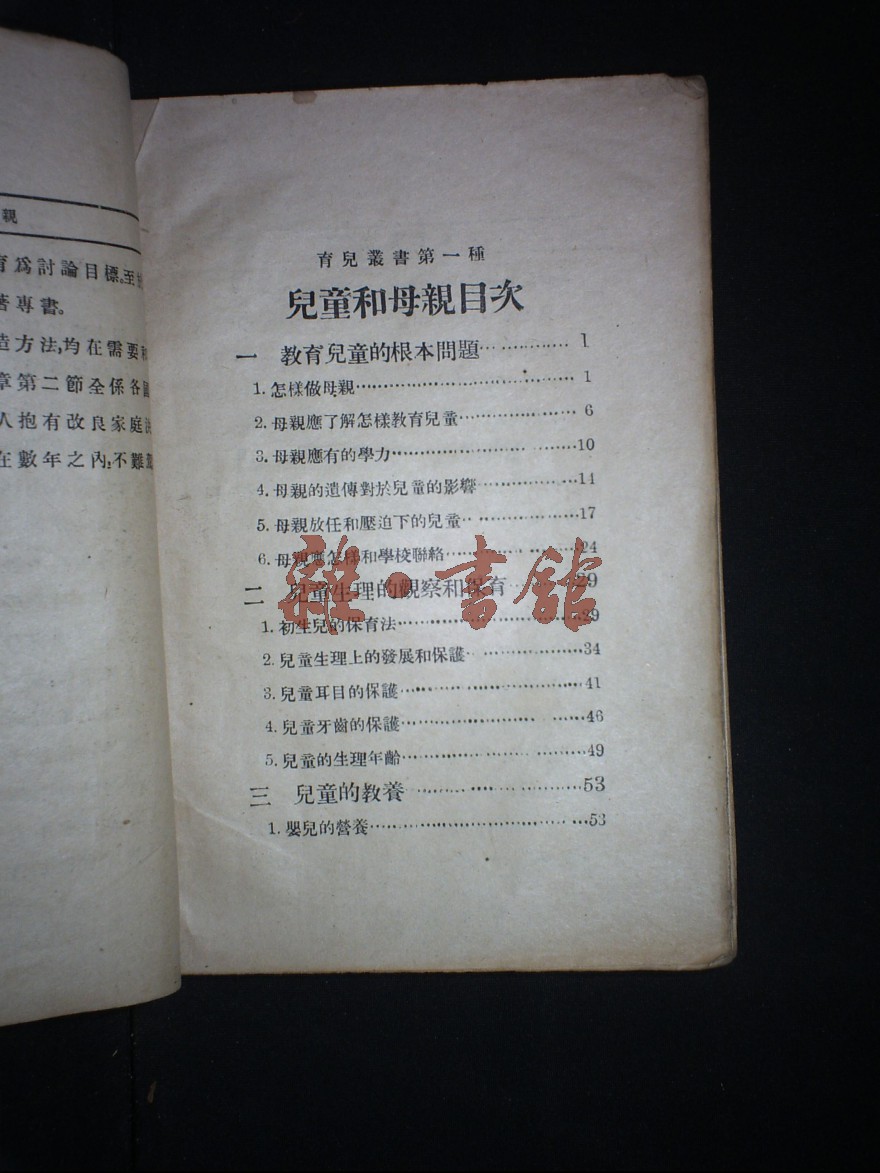 親
育爲討論目標。至
專書。
造方法,均在需要和
章第二節全係各國
人抱有改良家庭
在數年之內,不難
育兒叢書第一種
兒童和母親目次
一 教育兒童的根本問題 1
1. 怎樣做母親 1
2. 母親應了解怎樣教育兒童 6
3. 母親應有的學力 10
4. 母親的遺傳對於兒童的影響 14
5. 母親放任和壓迫下的兒童 17
6. 母親應怎樣和學校聯絡 24
二 兒童生理的觀察和保育 29
1. 初生兒的保育法 29
2. 兒童生理上的發展和保護 34
3. 兒童耳目的保護 41
4. 兒童牙齒的保護 46
5. 兒童的生理年齡 49
三 兒童的教養 53
1. 嬰兒的營養 53
雜·書館